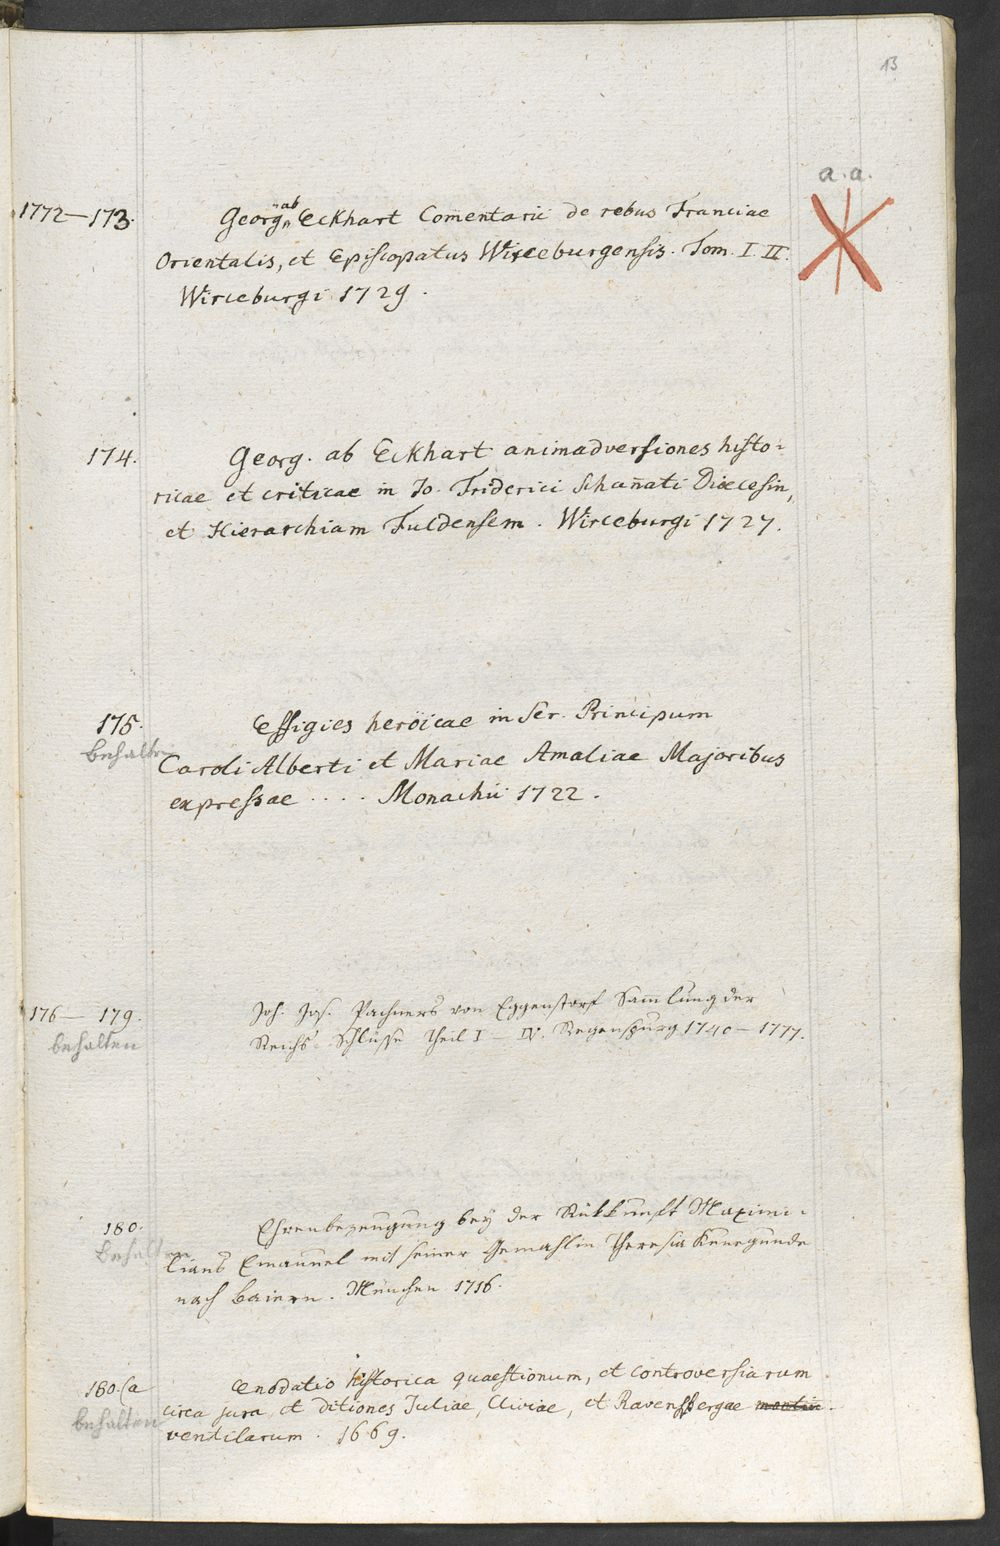 13
a. a.
1772—173. Georg. ab Eckhart Com̄entarii de rebus Franciae
Orientalis, et Episcopatus Wirceburgensis. Tom. I. II.
Wirceburgi 1729.
174. Georg. ab Eckhart animadversiones histo-
ricae et criticae in Jo. Friderici Schan̄ati Dioecesin,
et Hierarchiam Fuldensem. Wirceburgi 1727.
175. Effigies heroicae in Ser. Principum
behalten Caroli Alberti et Mariae Amaliae Majoribus
expressae .... Monachii 1722.
176— 179. Joh. Jos. Pachners von Eggenstorf Samlung der
behalten Reichs Schlüsse Theil I — IV. Regenspurg 1740—1777.
180. Ehrenbezeugung bey der Rükkunft Maximi-
behalten lians Emanuel mit seiner Gemahlin Theresia Kunegunde
nach Baiern. München 1716.
180.(a Enodatio historica quaestionum, et controversiarum
behalten circa jura, et ditiones Juliae, Cliviae, et Ravensbergae
ventilarum. 1669.